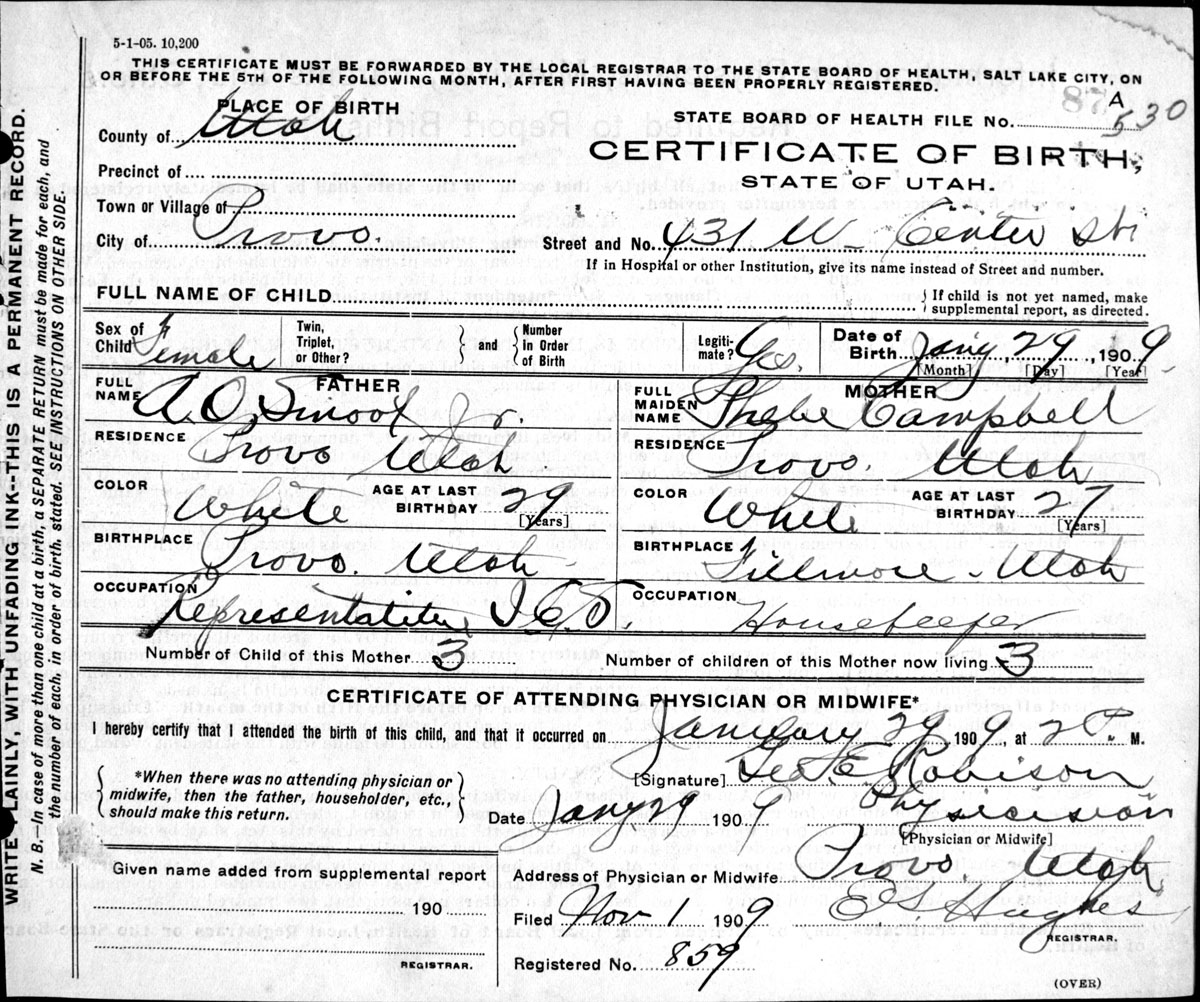 5-1-05. 10,200
THIS CERTIFICATE MUST BE FORWARDED BY THE LOCAL REGISTRAR TO THE STATE BOARD OF HEALTH, SALT LAKE CITY, ON
OR BEFORE THE 5TH OF THE FOLLOWING MONTH, AFTER FIRST HAVING BEEN PROPERLY REGISTERED.
WRITE LAINLY, WITH UNFADING INK--THIS IS A PERMANENT RECORD.
N. B.—In case of more than one child at a birth, a SEPARATE RETURN must be made for each, and
the number of each, in order of birth, stated. SEE INSTRUCTIONS ON OTHER SIDE.
PLACE OF BIRTH
County of Utah
Precinct of
Town or Village of
City of Provo.
STATE BOARD OF HEALTH FILE No. A 530
CERTIFICATE OF BIRTH,
STATE OF UTAH.
Street and No. 431 W Center Str
If in Hospital or other Institution, give its name instead of Street and number.
FULL NAME OF CHILD If child is not yet named, make
supplemental report, as directed.
Sex of Child Female Twin, Triplet, or Other? and Number in Order of Birth Legiti- mate? Yes. Date of Birth Jany 29, 1909
[Month] [Day] [Year]
FATHER
FULL NAME A. O. Smoot Jr.
RESIDENCE Provo Utah
COLOR White AGE AT LAST BIRTHDAY 29 [Years]
BIRTHPLACE Provo. Utah
OCCUPATION Representative I C S
MOTHER
FULL MAIDEN NAME Phebe Campbell
RESIDENCE Provo. Utah
COLOR White AGE AT LAST BIRTHDAY 27 [Years]
BIRTHPLACE Fillmore - Utah
OCCUPATION Housekeeper
Number of Child of this Mother 3 Number of children of this Mother now living 3
CERTIFICATE OF ATTENDING PHYSICIAN OR MIDWIFE*
I hereby certify that I attended the birth of this child, and that it occurred on January 29 1909, at 2 P. M.
*When there was no attending physician or
midwife, then the father, householder, etc.,
should make this return.
[Signature] Geo E Robison
Date Jany 29 1909 Physician
[Physician or Midwife]
Given name added from supplemental report
190
REGISTRAR.
Address of Physician or Midwife Provo. Utah
Filed Nov 1 1909 Hughes
REGISTRAR.
Registered No. 859
(OVER)